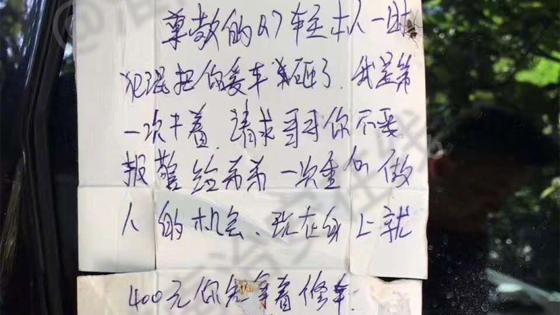 尊敬的Q7车主本人一时
犯混把你爱车单砸了.我是第
一次干着.请求哥哥你不要
报警给弟弟一次重仞做
人的机会、现在身上就
400元你先拿着修车.